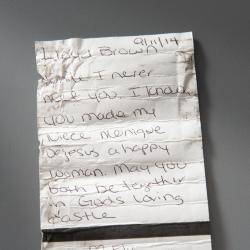 9/11/14
Brown
I never
you. I know
you made my
niece Monique
DeJesus a happy
woman. May you
both be together
in Gods loving
castle